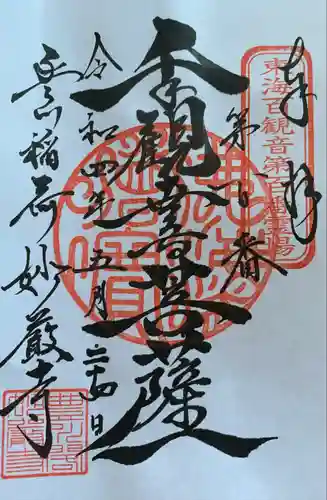 奉拝
東海百観音第百番霊場
第百番
千観世音菩薩
令和四年五月二十四日
豊川稲荷妙厳寺